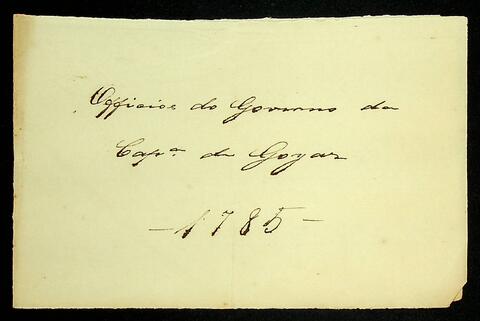 Officios do Governo da
Capª de Goyaz
- 1785 -